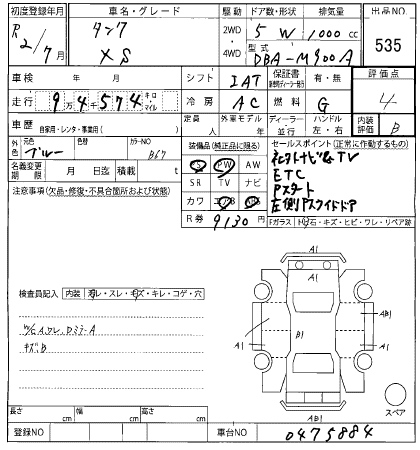 初度登録年月 車名・グレード 駆動 ドア数・形状 排気量 出品NO
R 2/7月 タンク XS 2WD 4WD 5 W 1000 cc 535
型式 DBA-M900A
車検 年 月 シフト IAT 保証書 有・無 評価点
走行 9万4千574 キロ マイル 冷房 AC 燃料 G 4
車歴 自家用・レンタ・事業用( ) 定員 人 外寸モデル ディーラー 並行 ハンドル 左・右 内装評価 B
外色 元色 ブルー 色替 カラーNO B67
装備品(純正品に限る) セールスポイント(正常に作動するもの)
PS PW AW
名義変更期限 月 日迄 積載 t
SR TV ナビ
ETC
Pスタート
注意事項(欠品・修復・不具合箇所および状態)
カワ エアB ABS
左側Pスライドドア
R券 9130 円
Fガラス 飛石・キズ・ヒビ・ワレ・リペア跡
A1
A1
検査員記入 内装 汚レ・スレ・キズ・キレ・コゲ・穴
AB1
A1 B1 A1
キズB
A1
AB1
スペア
長さ cm 幅 cm 高さ cm
登録NO 車台NO 0475884